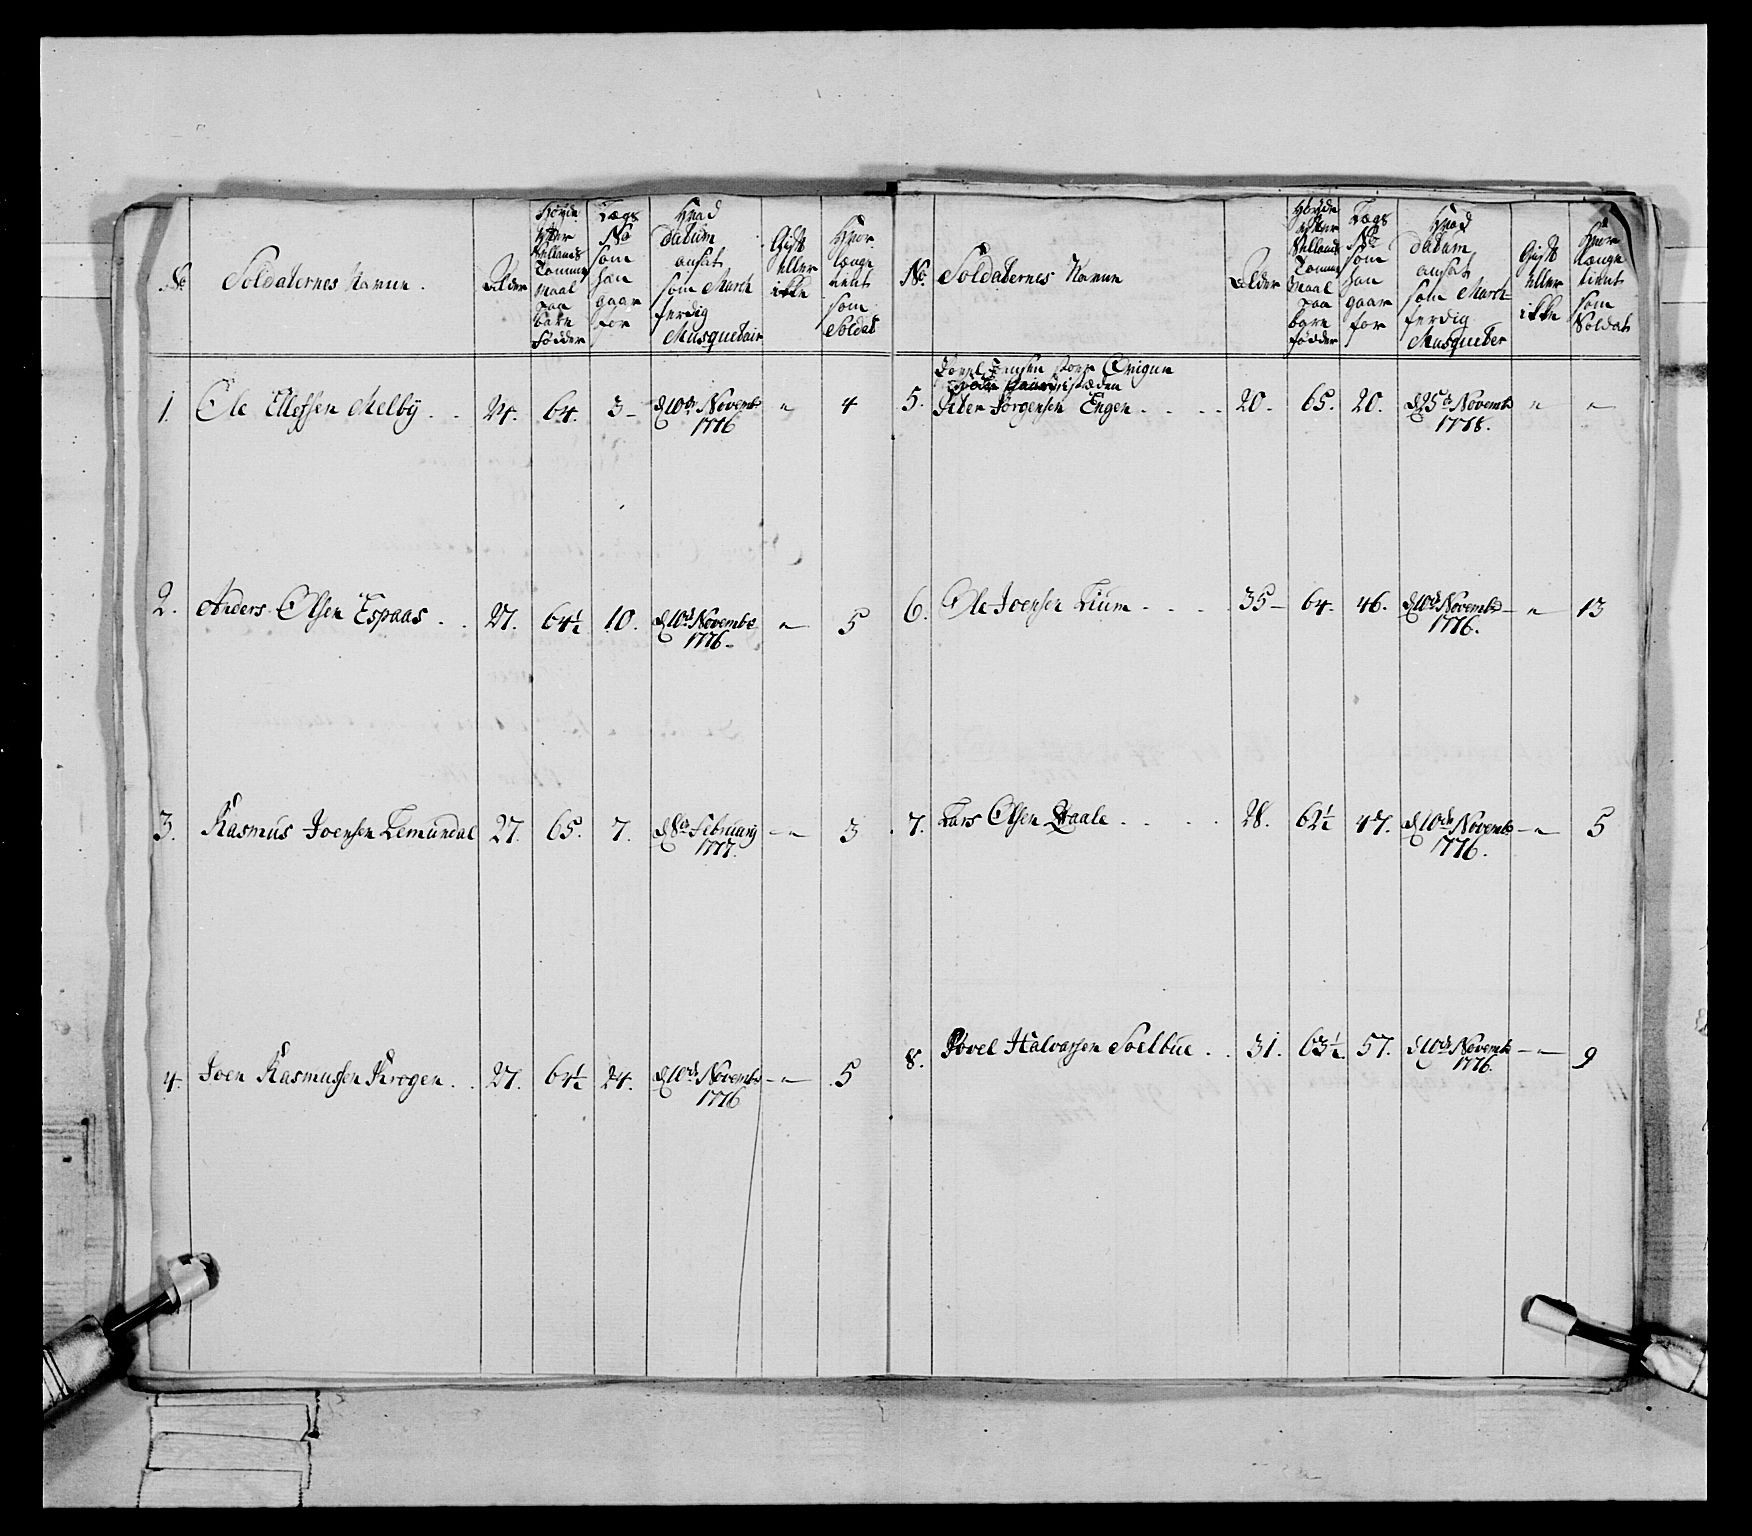 No
Soldaternes Navne.
Alder
Høyde
efter
Sællands
Tomme
Maal
paa
bare
fødder
Lægs
No
som
han
gaar
for
Hvad
datum
ansat
som March
ferdig
Musquetair
Gift
eller
ikke
Hvor
længe
tient
som
Soldat
1. Ole Ellefsen Melby . . 24. 64. 3 - d 10de Novembr " 4
1776
2. Anders Olsen Espaas . . 27. 64½ 10. d 10de Novembr " 5
1776.
3. Rasmus Joensen Lemundal 27. 65. 7. d 8de Februarij - " - 3
1777.
4. Joen Rasmussen Krogen . . 27. 64½ 24. d 10de Novembr - " - 5
1776
No.
Soldaternes Navne
Alder
Høyde
efter
Sællands
Tomme
Maal
paa
bare
fødder
Lægs
No
som
han
gaar
for
Hvad
datum
ansat
som March
ferdig
Musqueter
Gift
eller
ikke
Hvor
længe
tient
som
Soldat
Jensen
i stæden
5. Peder Jørgensen Engen . . . . 20. 65. 20. d 25de Novembr " "
1778.
6. Ole Joensen Lium . . . . 35 - 64. 46. d 10de Novembr - " 13
1776.
7. Lars Olsen Qvaale . . . . 28. 62½ 47. d 10de Novembr - " - 5
1776.
8. Povel Halvorsen Soelbue . . 31. 63½ 57. d 10de Novembr - " - 9
1776.